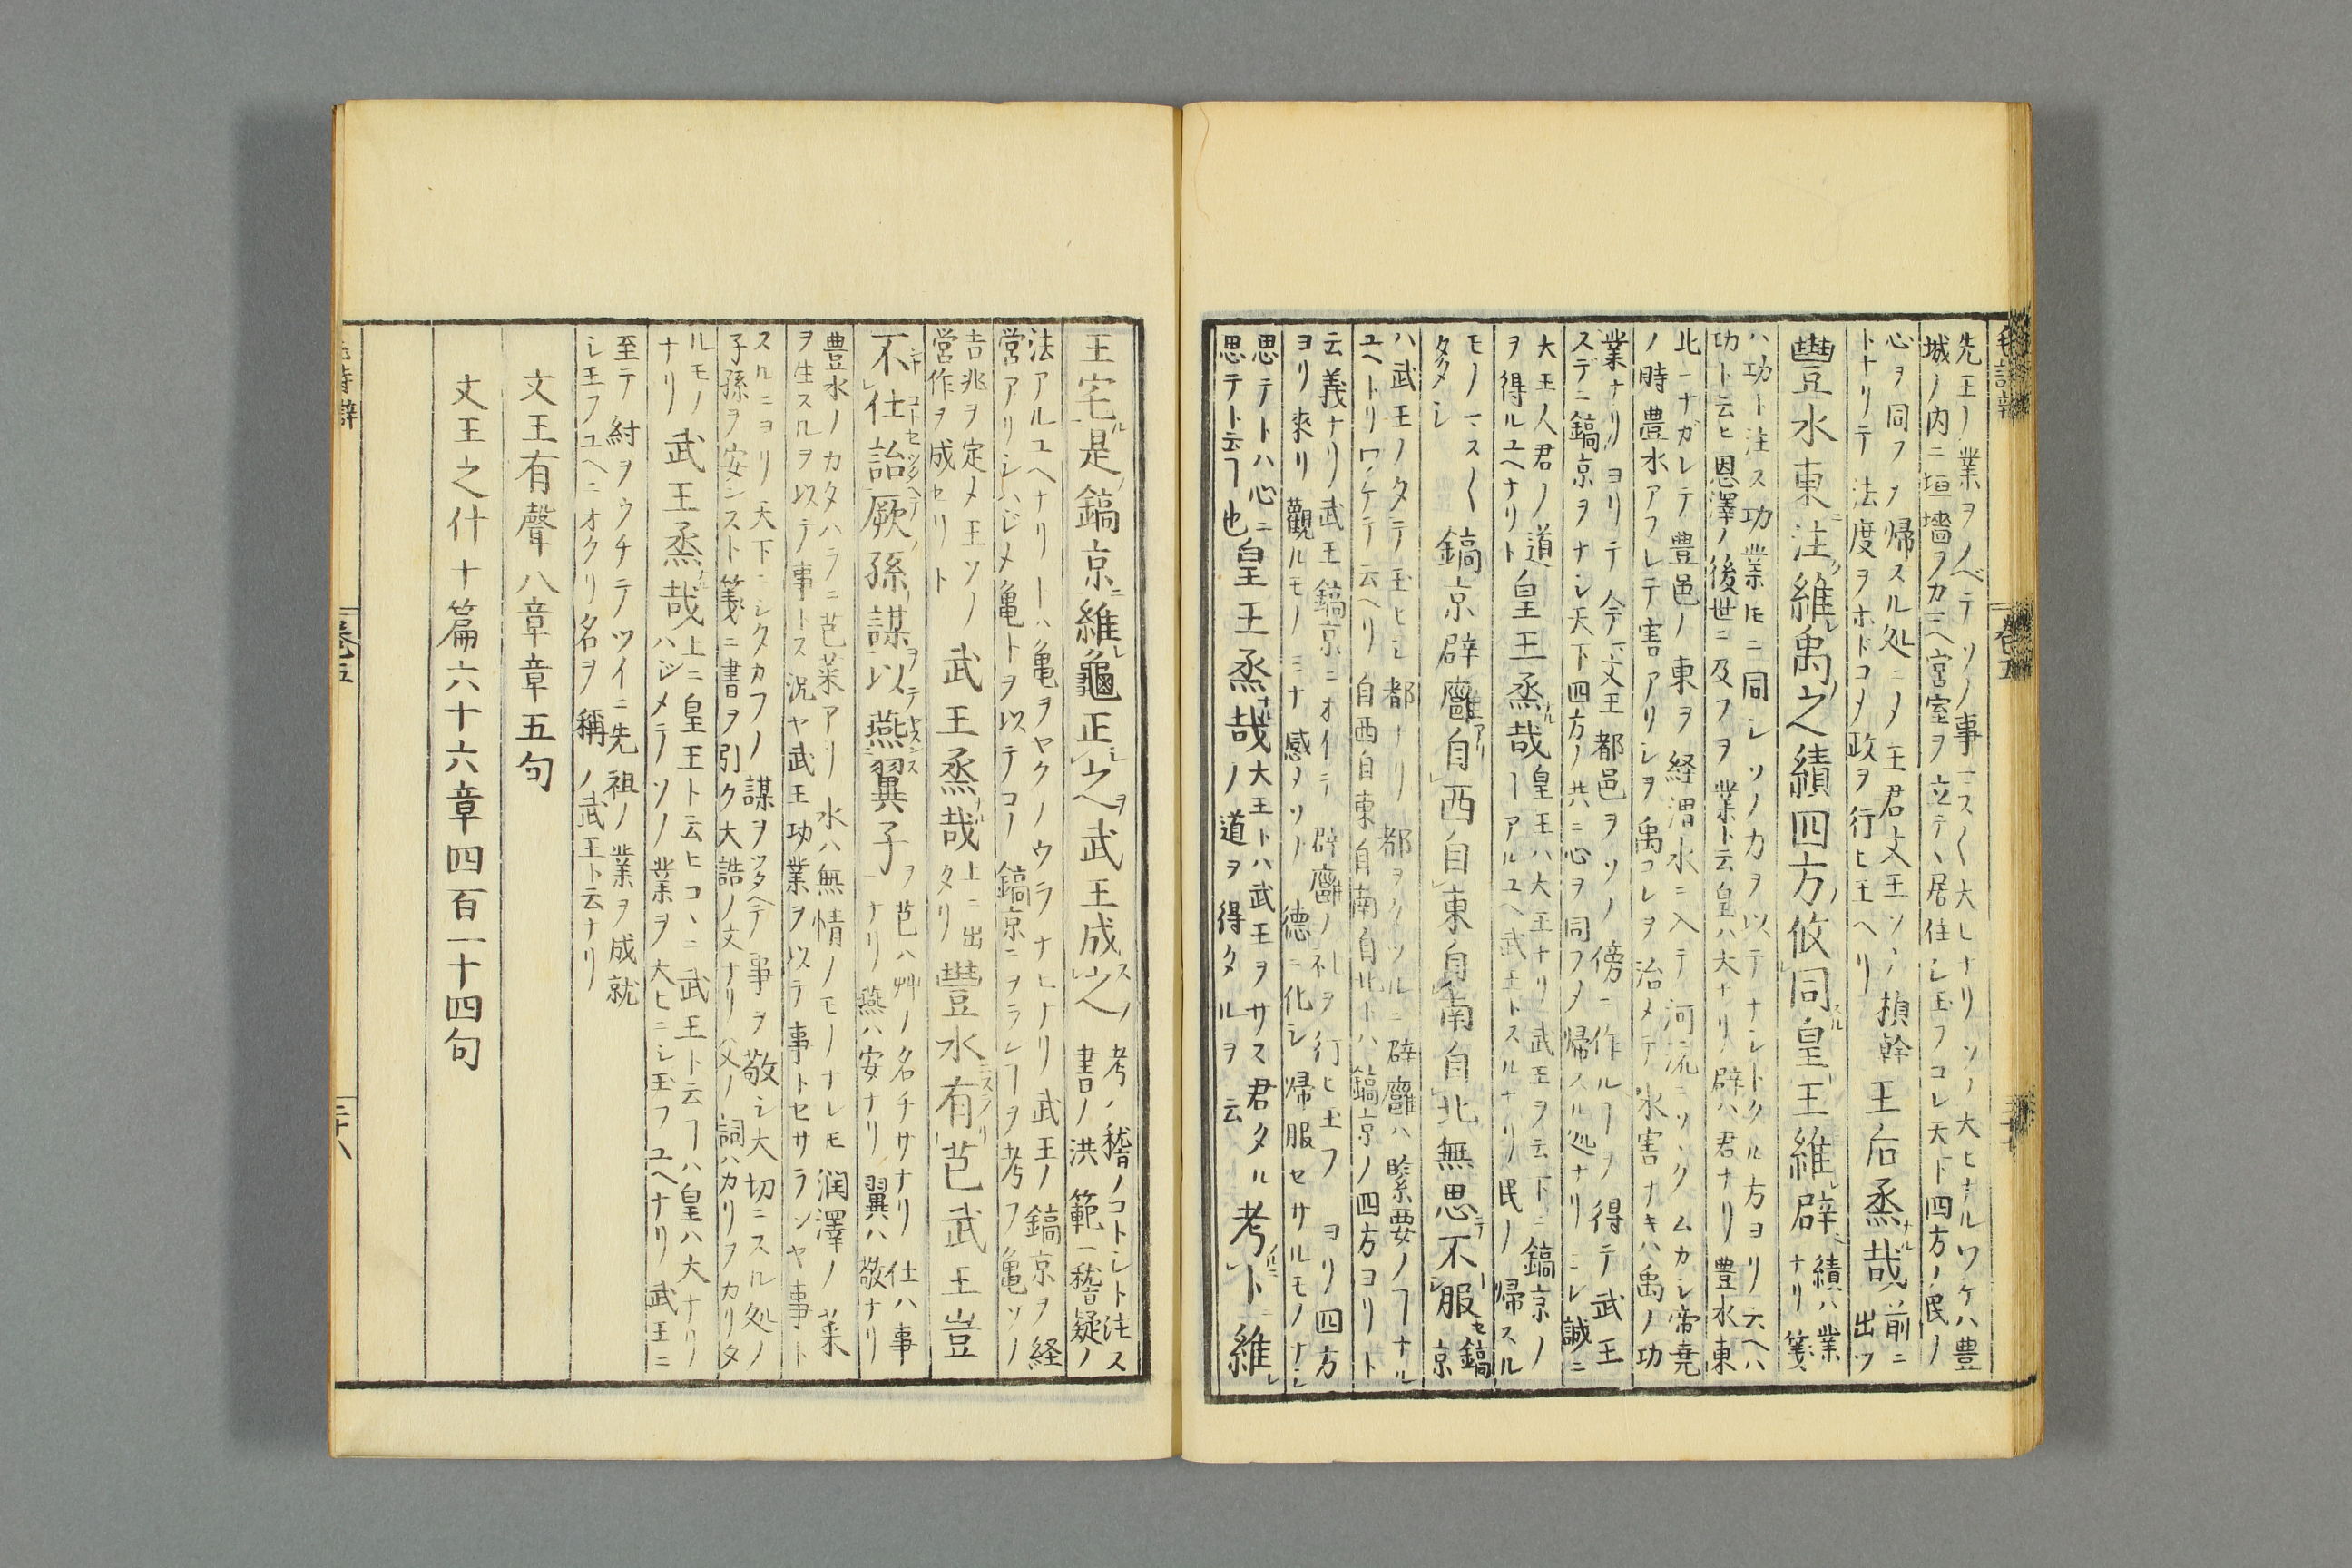 先王ノ業ヲノベテソノ事一スく大レナリソノ大ヒナルワケハ豊
城ノ内ニ垣墻ヲカマヘ宮室ヲ立テヽ居住シ玉フコレ天下四方ノ民ノ
心ヲ同フメ帰スル処ニメ王君文王ソノ楨幹
トナリテ法度ヲホドコメ政ヲ行ヒ王ヘリ
王后烝哉
前ニ
出ツ
豐水東注維禹之績四方攸同皇王維辟
績ハ業
ナリ箋
ハ功ト注ス功業トモニ同シソノカヲ以テナシトクル方ヨリ云ヘハ
功ト云ヒ恩澤ノ後世ニ及フヲ業ト云皇ハ大ナリ辟ハ君ナリ豊水東
北ニナガレテ豊邑ノ東ヲ経渭水ニ入テ河流ニソヽクムカシ帝堯
ノ時豊水アフレテ害アリシヲ禹コレヲ治メテ水害ナキハ禹ノ功
業ナリヨリテ今文王都邑ヲソノ傍ニ作ルヿヲ得テ武王
スデニ鎬京ヲナシ天下四方ノ共ニ心ヲ同フメ帰スル処ナリコレ誠ニ
大王人君ノ道
ヲ得ルユヘナリト
皇王烝哉
皇王ハ大王ナリ武王ヲ云下ニ鎬京ノ
ーアルユヘ武王トスルナリ民ノ帰スル
モノマスく
多シ
鎬京辟廱自西自東自南自北無思不服
鎬
京
ハ武王ノタテ玉ヒシ都ナリ都ヲタツルニ辟廱ハ緊要ノヿナル
ユヘトリワケテ云ヘリ自西自東自南自北トハ鎬京ノ四方ヨリト
云義ナリ武王鎬京ニオイテ辟廱ノ礼ヲ行ヒ玉フヨリ四方
ヨリ來リ觀ルモノミナ感メソノ德ニ化シ帰服セサルモノナシ
思テトハ心ニ
思テト云ヿ也
皇王烝哉
大王トハ武王ヲサス君タル
ノ道ヲ得タルヲ云
考卜維
王宅是鎬京維龜正之武王成之
考ノ稽ノコトシト注ス
書ノ洪範ニ稽疑ノ
法アルユヘナリーハ亀ヲヤクノウラナヒナリ武王ノ鎬京ヲ経
営アリシハジメ亀トヲ以テコノ鎬京ニヲラレヿヲ考フ亀ソノ
吉兆ヲ定メ王ソノ
営作ヲ成セリト
武王烝哉
上ニ出
タリ
豐水有芑武王豈
不仕詒厥孫謀以燕翼子
芑ハ艸ノ名チサナリ仕ハ事
ナリ燕ハ安ナリ翼ハ敬ナリ
豊水ノカタハラニ芑菜アリ水ハ無情ノモノナレモ润澤ノ菜
ヲ生スルヲ以テ事トス況ヤ武王功業ヲ以テ事トセサランヤ事ト
スルニヨリ天下ニシタカフノ謀ヲツタヘテ事ヲ敬シ大切ニスル処ノ
子孫ヲ安ンスト箋ニ書ヲ引ク大誥ノ文ナリ父ノ詞ハカリヲカリタ
ルモノ
ナリ
武王烝哉
上ニ皇王ト云ヒコヽニ武王ト云フハ皇ハ大ナリ
ハジメテソノ業ヲ大ヒニシ玉フユヘナリ武王ニ
至テ紂ヲウチテツイニ先祖ノ業ヲ成就
シ王フユヘニオクリ名ヲ稱ノ武王ト云ナリ
文王有聲八章章五句
文王之什十篇六十六章四百一十四句